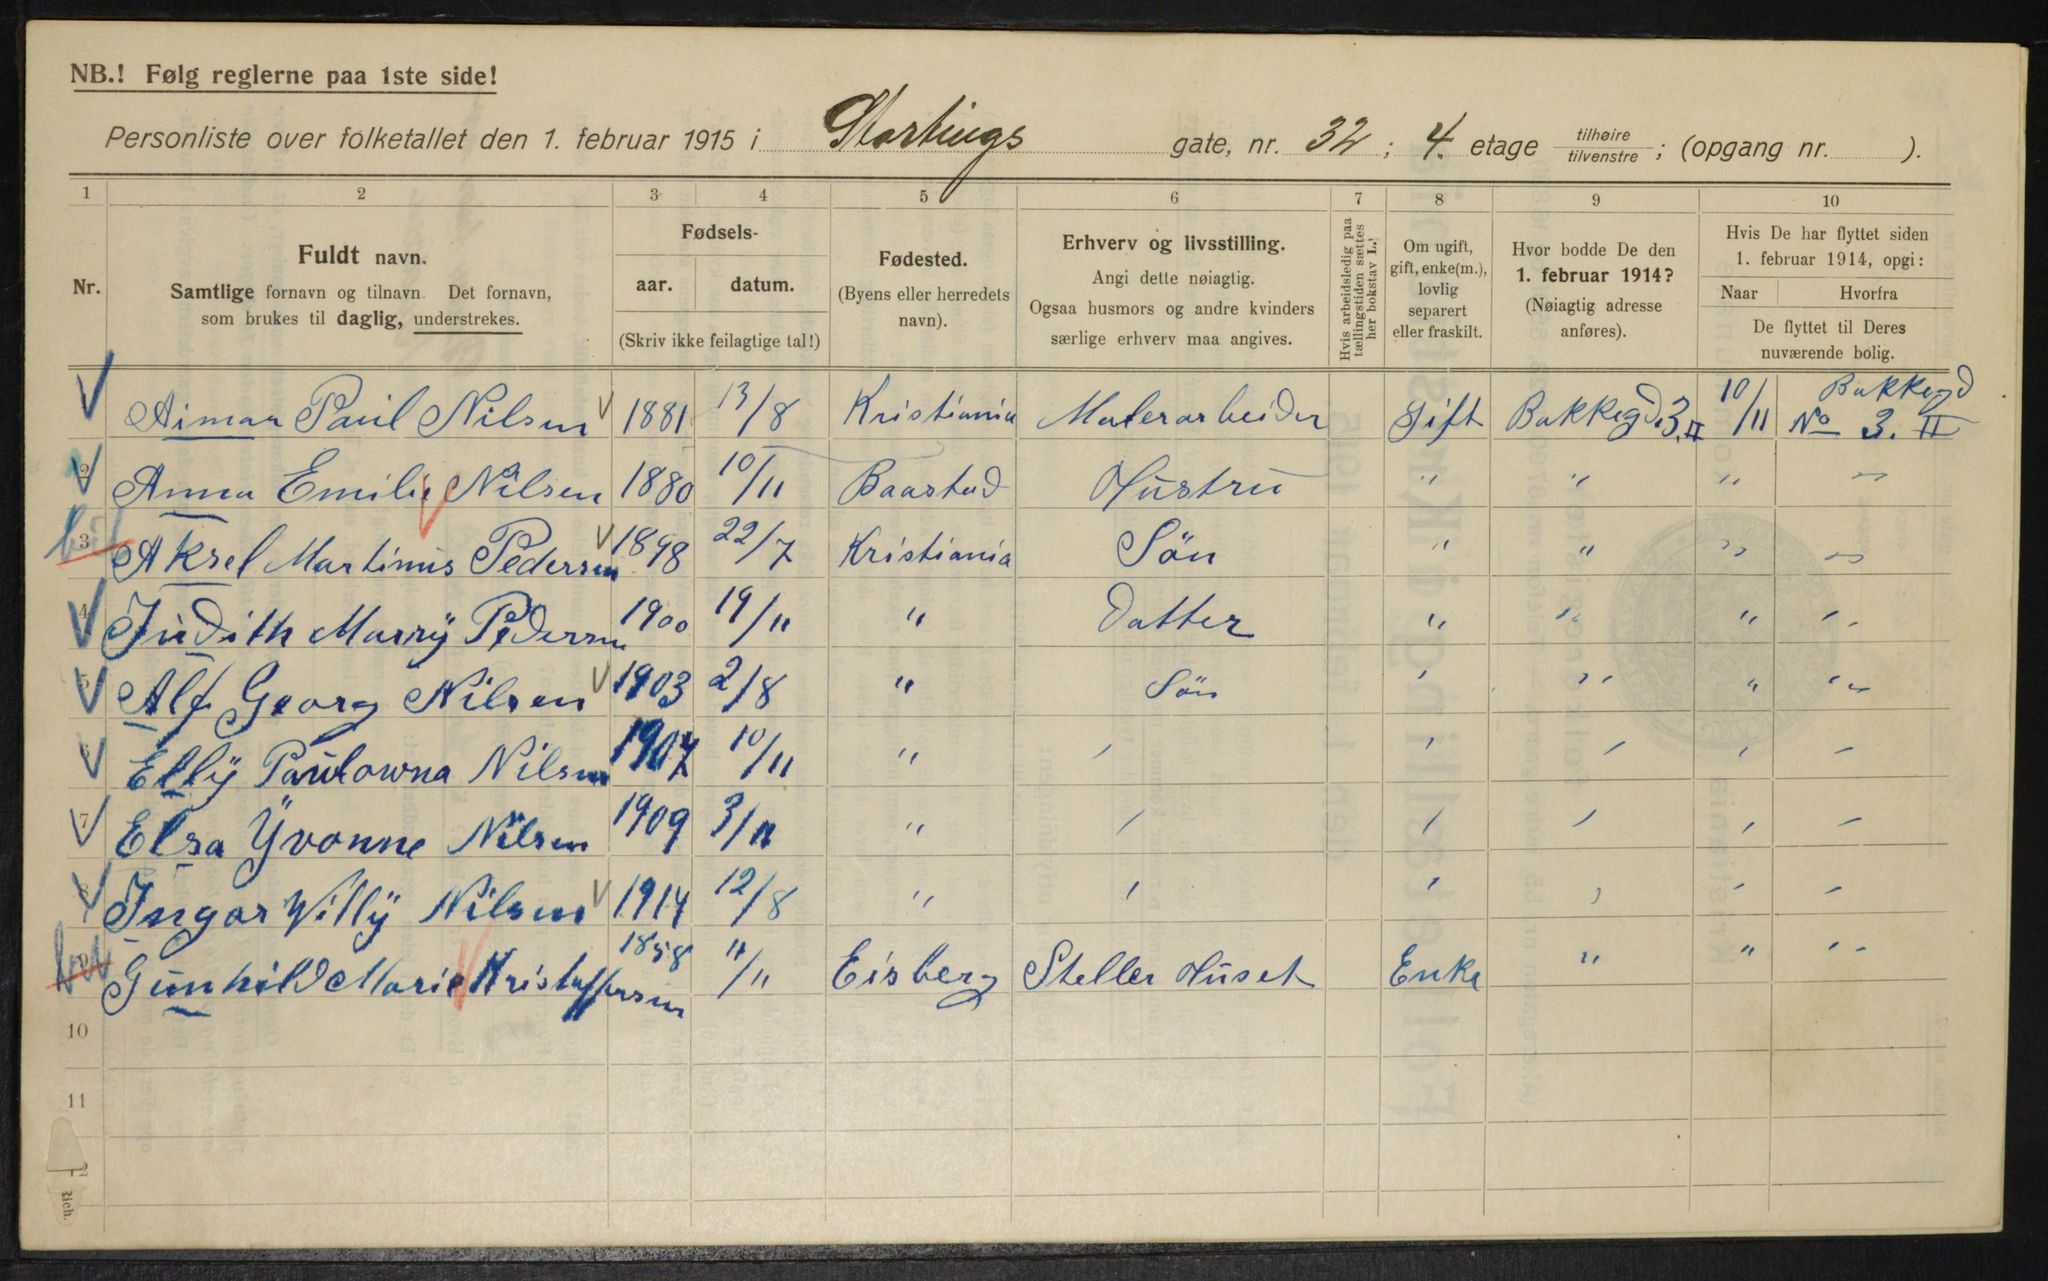 NB.! Følg reglerne paa 1ste side!
Personliste over folketallet den 1. februar 1915 i Stortings gate, nr. 32 ; 4. etage tilhøire / tilvenstre ; (opgang nr. ).
1 2 3 4 5 6 7 8 9 10
Nr.
Fuldt navn.
Samtlige fornavn og tilnavn. Det fornavn,
som brukes til daglig, understrekes.
Fødsels-
aar. datum.
(Skriv ikke feilagtige tal!)
Fødested.
(Byens eller herredets
navn).
Erhverv og livsstilling.
Angi dette nøiagtig.
Ogsaa husmors og andre kvinders
særlige erhverv maa angives.
Hvis arbeidsledig paa
tællingstiden sættes
her bokstav L.
Om ugift,
gift, enke(m.),
lovlig
separert
eller fraskilt.
Hvor bodde De den
1. februar 1914?
(Nøiagtig adresse
anføres).
Hvis De har flyttet siden
1. februar 1914, opgi:
Naar Hvorfra
De flyttet til Deres
nuværende bolig.
Aimar Paul Nilsen 1881 13/8 Kristiania Malerarbeider Gift Bakkegd. 3. II 10/11 Bakkegd No 3. II
2 Anna Emilie Nilsen 1880 10/11 Baastad Hustru " " " "
3 Aksel Martinius Pedersen 1898 22/7 Kristiania Søn " " " "
4 Judith Marry Pedersen 1900 19/11 " Datter " " " "
5 Alf Georg Nilsen 1903 2/8 " Søn " " " "
6 Elly Paulowna Nilsen 1907 10/11 " " " " " "
7 Elsa Yvonne Nilsen 1909 3/11 " " " " " "
8 Ingar Villy Nilsen 1914 12/8 " " " " " "
9 Gunhild Marie Kristoffersen 1858 11/11 Eisberg Steller Huset Enke " " "
10
11
12